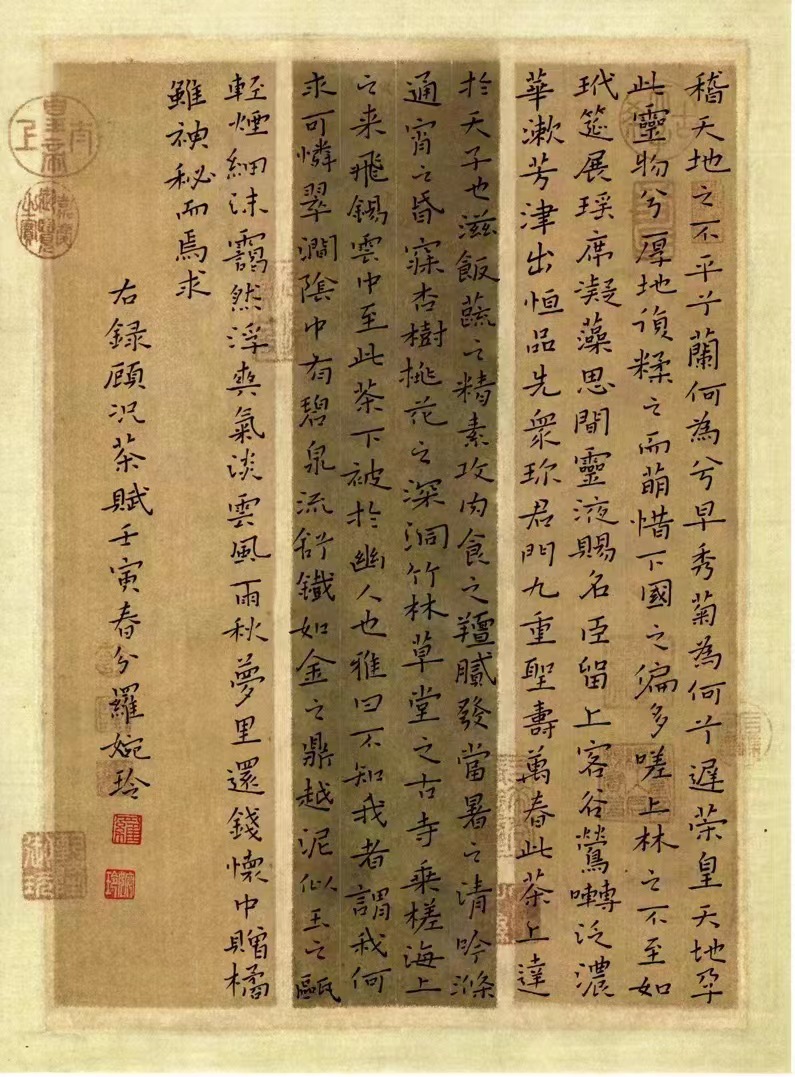 稽天地之不平兮蘭何為兮早秀菊為何兮遲荣皇天地孕
此靈物兮厚地復糅之而萌惜下國之偏多嗟上林之不至如
玳筵展瑶席凝藻思間靈液賜名臣留上客谷鶯囀泛濃
華漱芳津出恒品先衆珍君門九重聖壽萬春此茶上達
於天子也滋飯蔬之精素攻肉食之羶膩發當暑之清吟滌
通宵之昏寐杏樹桃花之深洞竹林草堂之古寺乘槎海上
之来飛錫雲中至此茶下被於幽人也雅曰不知我者謂我何
求可憐翠澗陰中有碧泉流舒鐵如金之鼎越泥似玉之甌
輕煙細沫靄然浮爽氣淡雲風雨秋夢里還錢懷中贈橘
雖神秘而焉求
右録顧况茶賦壬寅春分羅婉玲